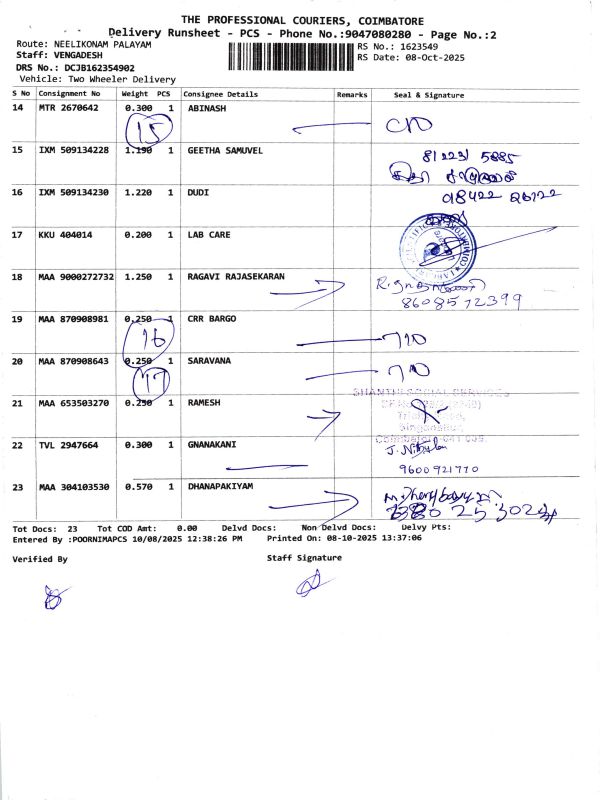 THE PROFESSIONAL COURIERS, COIMBATORE
Delivery Runsheet - PCS - Phone No.:9047080280 - Page No.:2
Route: NEELIKONAM PALAYAM
RS No.: 1623549
Staff: VENGADESH
RS Date: 08-Oct-2025
DRS No.: DCJB162354902
Vehicle: Two Wheeler Delivery
S No Consignment No Weight PCS Consignee Details Remarks Seal & Signature
14 MTR 2670642 0.300 1 ABINASH
15
15 IXM 509134228 1.190 1 GEETHA SAMUVEL
81223 5885
16 IXM 509134230 1.220 1 DUDI
98422 26122
17 KKU 404014 0.200 1 LAB CARE
18 MAA 9000272732 1.250 1 RAGAVI RAJASEKARAN
8608572399
19 MAA 870908981 0.250 1 CRR BARGO
16
20 MAA 870908643 0.250 1 SARAVANA
17
SHANTHI SOCIAL SERVICES
21 MAA 653503270 0.250 1 RAMESH
Singanallur,
22 TVL 2947664 0.300 1 GNANAKANI
9600921770
23 MAA 304103530 0.570 1 DHANAPAKIYAM
Tot Docs: 23 Tot COD Amt: 0.00 Delvd Docs: Non Delvd Docs: Delvy Pts:
Entered By :POORNIMAPCS 10/08/2025 12:38:26 PM Printed On: 08-10-2025 13:37:06
Verified By Staff Signature